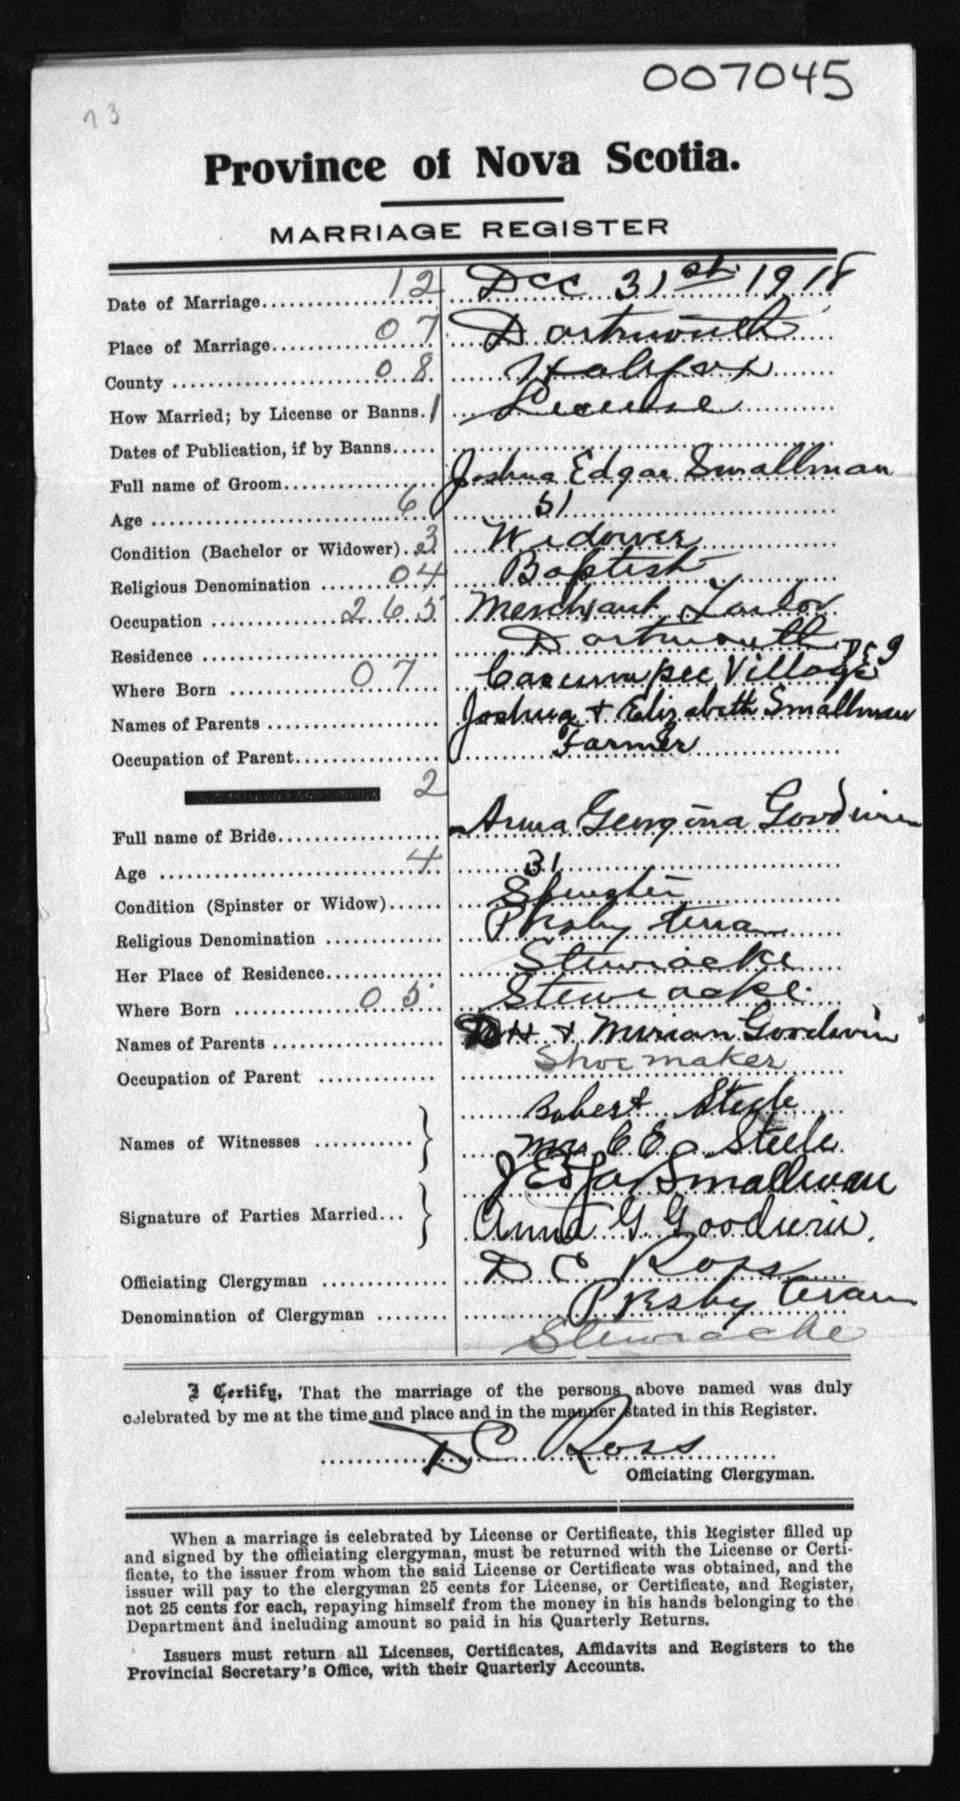 007045
73
Province of Nova Scotia.
MARRIAGE REGISTER
Date of Marriage 12 Dec 31st 1918
Place of Marriage 07 Dartmouth
County 08 Halifax
How Married; by License or Banns. 1 License
Dates of Publication, if by Banns
Full name of Groom Joshua Edgar Smallman
Age 6 51
Condition (Bachelor or Widower) 3 Widower
Religious Denomination 04 Baptist
Occupation 265 Merchant Tailor
Residence Dartmouth
Where Born 07 Cascumpec Village
Names of Parents Joshua & Elizabeth Smallman
Occupation of Parent Farmer
2
Full name of Bride Anna Georgina Goodwin
Age 4 31
Condition (Spinster or Widow) Spinster
Religious Denomination Presbyterian
Her Place of Residence Stewiacke
Where Born 05 Stewiacke
Names of Parents & Miriam Goodwin
Occupation of Parent Shoemaker
Names of Witnesses Robert Steele
Mrs C E Steele
Signature of Parties Married J Edgar Smallman
Anna G. Goodwin.
Officiating Clergyman D C Ross
Denomination of Clergyman Presbyterian
Stewiacke
I Certify, That the marriage of the persons above named was duly
celebrated by me at the time and place and in the manner stated in this Register.
D C Ross
Officiating Clergyman.
When a marriage is celebrated by License or Certificate, this Register filled up
and signed by the officiating clergyman, must be returned with the License or Certi-
ficate, to the issuer from whom the said License or Certificate was obtained, and the
issuer will pay to the clergyman 25 cents for License, or Certificate, and Register,
not 25 cents for each, repaying himself from the money in his hands belonging to the
Department and including amount so paid in his Quarterly Returns.
Issuers must return all Licenses, Certificates, Affidavits and Registers to the
Provincial Secretary's Office, with their Quarterly Accounts.